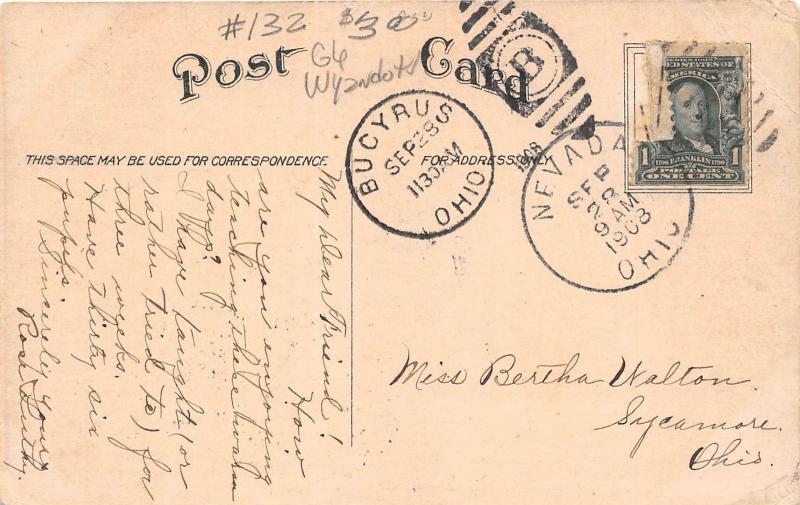 #132 $3000
G6
Wyandot
Post Card
THIS SPACE MAY BE USED FOR CORRESPONDENCE.
FOR ADDRESS ONLY
BUCYRUS
SEP 28
1130AM
OHIO
1908
B
NEVADA
SEP
28
9AM
1908
OHIO
SERIES 1902
UNITED STATES OF
AMERICA
1 1706 FRANKLIN 1790 1
POSTAGE
ONE CENT
My Dear Friend! How
are you enjoying
teaching these warm
days?
I have taught (or
rather tried to) for
three weeks.
Have thirty six
pupils.
Sincerely Yours
Miss Bertha Walton.
Sycamore.
Ohio.